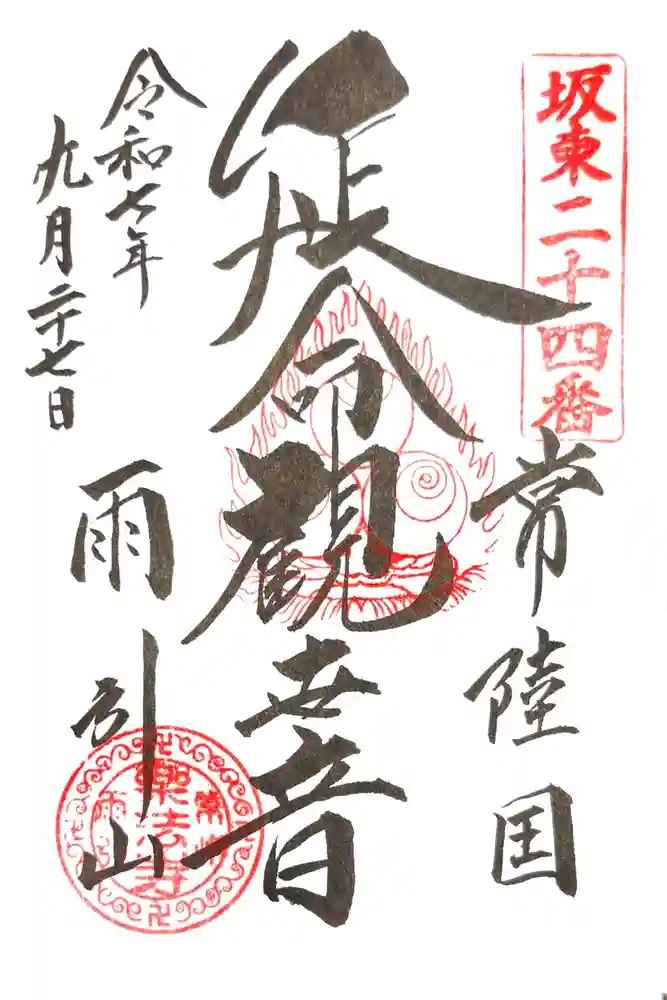 坂東二十四番
常陸国
延命観世音
雨引山
令和七年
九月二十七日
常州
樂法寺
雨引